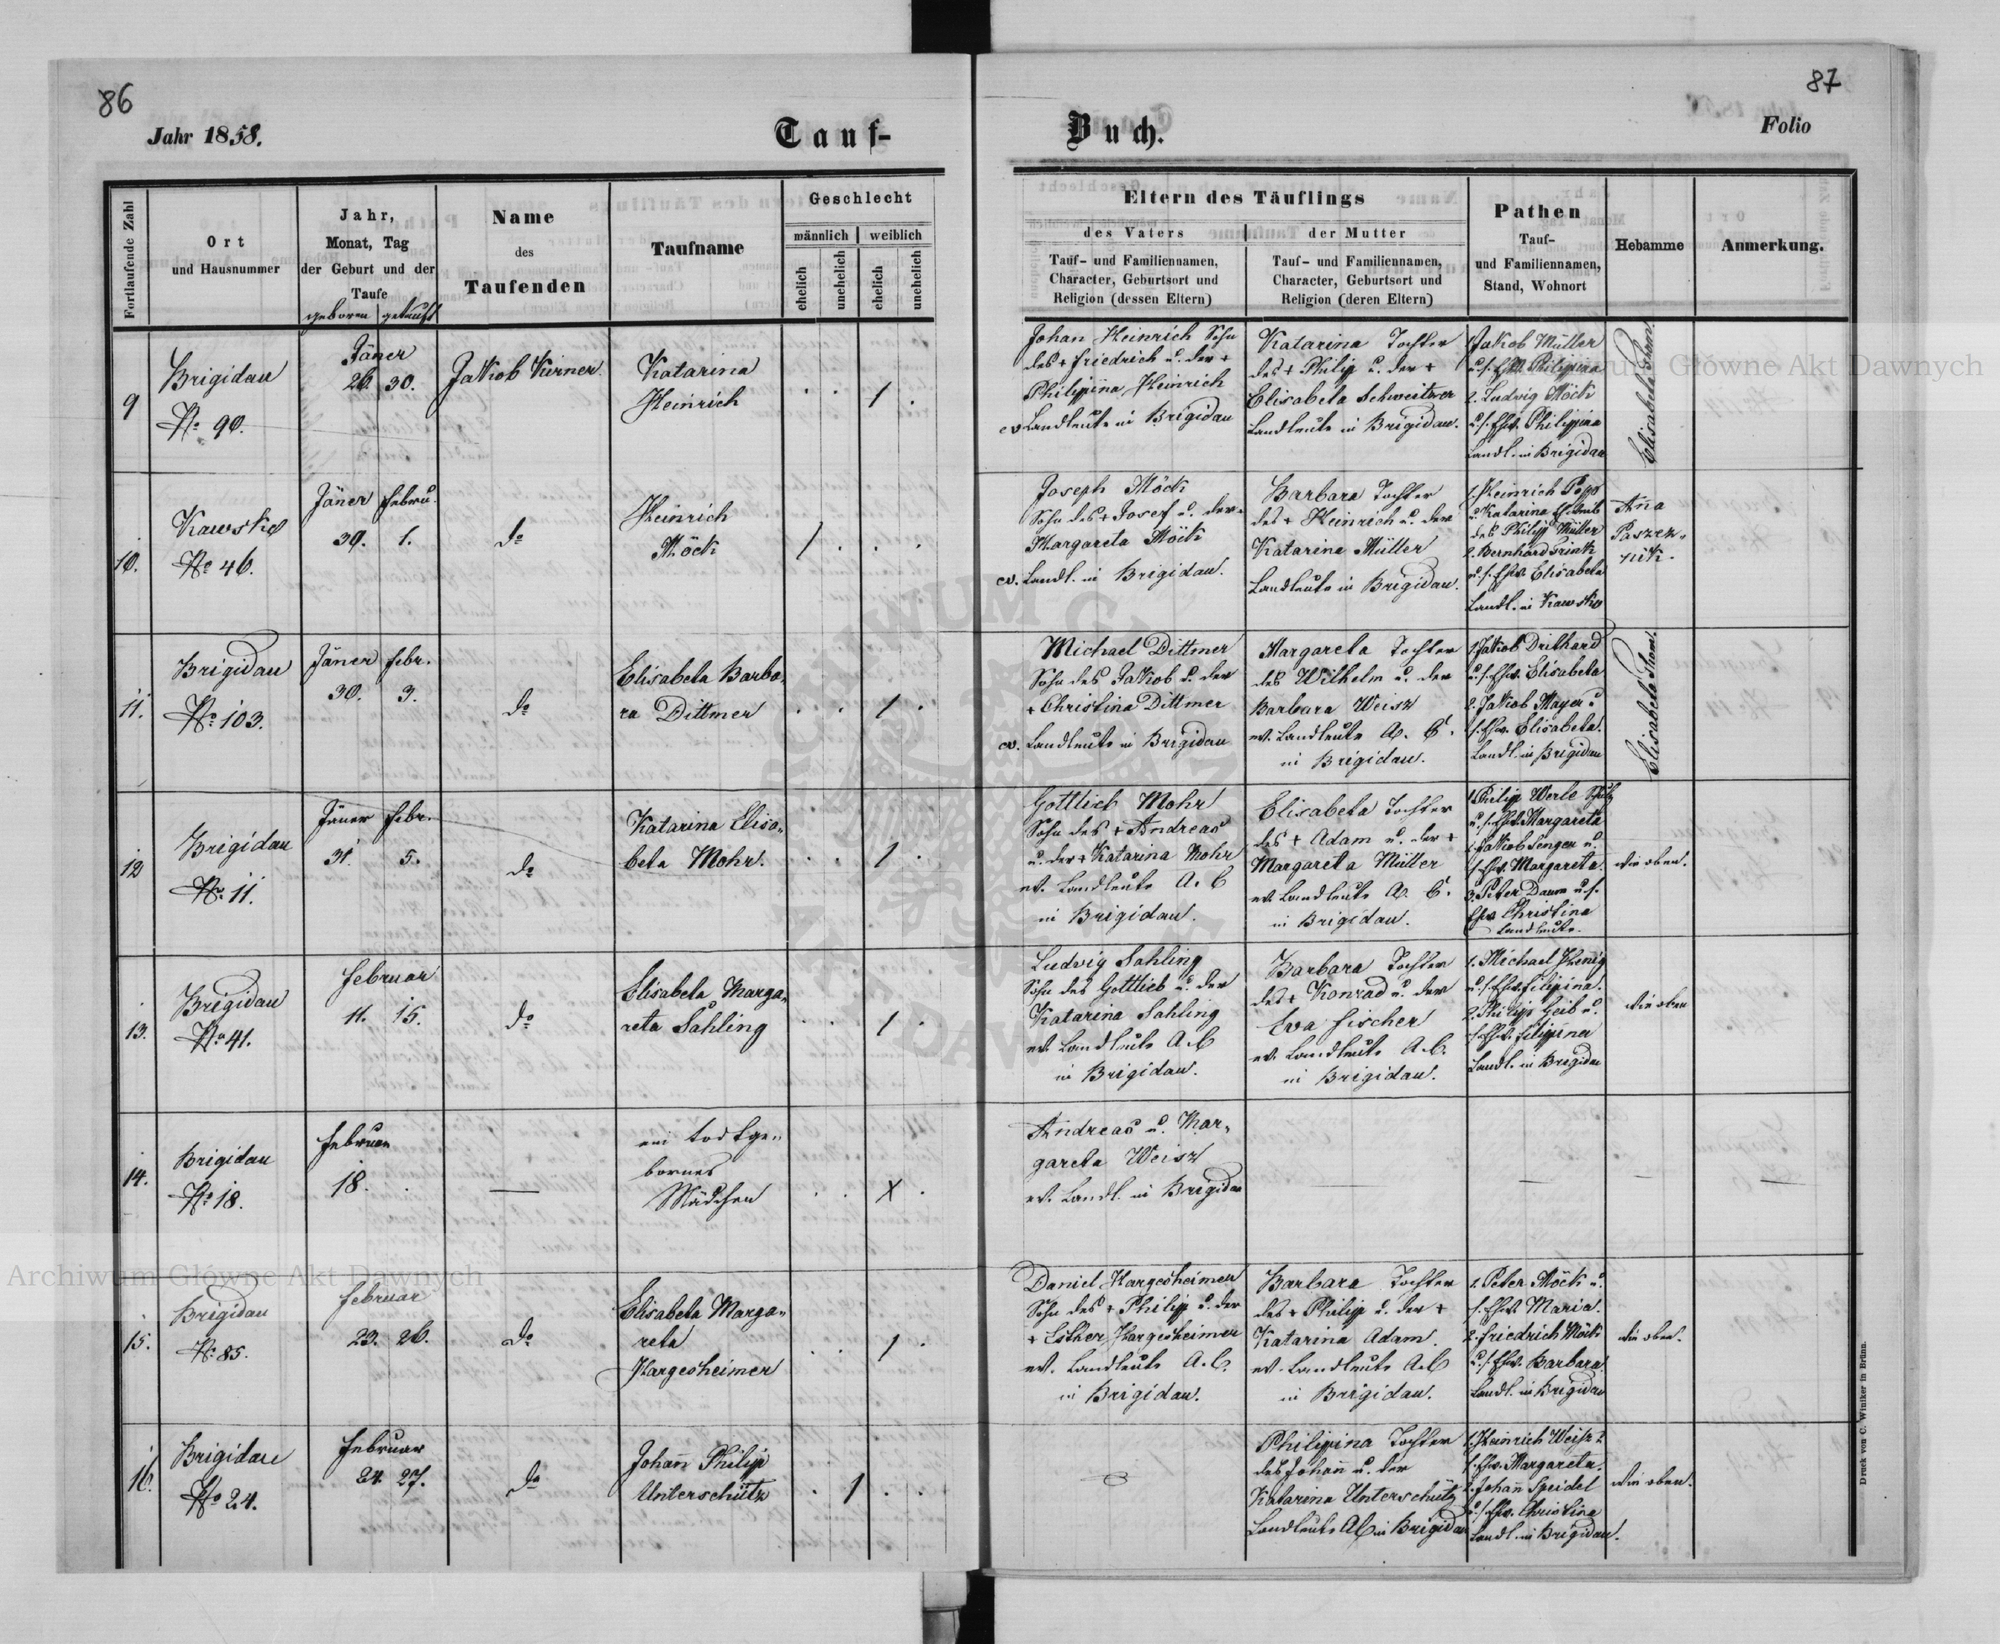 86
87
Jahr 1858.
Tauf-
Buch.
Folio
Fortlaufende Zahl
Ort
und Hausnummer
Jahr,
Monat, Tag
der Geburt und der
Taufe
geboren getauft
Name
des
Taufenden
Taufname
Geschlecht
männlich
weiblich
ehelich
unehelich
ehelich
unehelich
Eltern des Täuflings
des Vaters
Tauf- und Familiennamen,
Character, Geburtsort und
Religion (dessen Eltern)
der Mutter
Tauf- und Familiennamen,
Character, Geburtsort und
Religion (deren Eltern)
Pathen
Tauf-
und Familiennamen,
Stand, Wohnort
Hebamme
Anmerkung.
9
Brigidau
No 90.
Jäner
26. 30.
Jakob Kirner
Katarina
Heinrich
1
Johan Heinrich Sohn
des + Friedrich u. der +
Philippina Heinrich
ev Landleute in Brigidau
Katarina Tochter
des + Philip u. der +
Elisabeta Schweitzer
Landleute in Brigidau.
1. Jakob Müller
u. s. Ehw. Philippina
2. Ludvig Möck
u. s. Ehw. Philippina
Landl. in Brigidau
Elisabeta
10.
Kawsko
No 46.
Jäner Febru.
30. 1.
do
Heinrich
Möck
1
Joseph Möck
Sohn des + Josef u. der
Margareta Möck
ev. Landl. in Brigidau.
Barbara Tochter
des + Heinrich u. der
Katarina Müller
Landleute in Brigidau.
1. Heinrich Popp
u. Katarina
des Philipp Müller
2. Bernhard
u. s. Ehw. Elisabeta
Landl. in Kawsko
Anna
11.
Brigidau
No 103.
Jäner Febr.
30. 3.
do
Elisabeta Barba-
ra Dittmer
1
Michael Dittmer
Sohn des Jakob u. der
+ Christina Dittmer
ev. Landleute in Brigidau
Margareta Tochter
des Wilhelm u. der
Barbara Weisz
ev. Landleute A. C.
in Brigidau.
1. Jakob
u. s. Ehw. Elisabeta
2. Jakob Mayer u
s. Ehw. Elisabeta.
Landl. in Brigidau
Elisabeta
12
Brigidau
No 11.
Jäner Febr.
31. 5.
do
Katarina Elisa-
beta Mohr.
1
Gottlieb Mohr
Sohn des + Andreas
u. der + Katarina Mohr
ev. Landleute A. C
in Brigidau.
Elisabeta Tochter
des + Adam u. der +
Margareta Müller
ev Landleute A. C.
in Brigidau.
1. Philip Werle
u. s. Ehw. Margareta
2. Jakob Senger u.
s. Ehw. Margareta.
3. Peter Daum u. s.
Ehw Christina
Landleute.
wie oben.
13.
Brigidau
No 41.
Februar
11. 15.
do
Elisabeta Marga-
reta Sahling
1
Ludvig Sahling
Sohn des Gottlieb u. der
Katarina Sahling
ev. Landleute A. C
in Brigidau.
Barbara Tochter
des + Konrad u. der
Eva Fischer
ev. Landleute A. C.
in Brigidau.
1. Michael
u. s. Ehw. Filipina.
2. Philipp Geib u.
s. Ehw. Filippina
Landl. in Brigidau
wie oben
14.
Brigidau
No 18.
Februar
18.
ein todtge-
bornes
Mädchen
X
Andreas u. Mar-
gareta Weisz
ev. Landl. in Brigidau
15.
Brigidau
No 85.
Februar
23. 26.
do
Elisabeta Marga-
reta
Hargesheimer
1
Daniel Hargesheimer
Sohn des + Philip u. der
+ Esther Hargesheimer
ev. Landleute A. C.
in Brigidau.
Barbara Tochter
des + Philip u. der +
Katarina Adam
ev. Landleute A. C
in Brigidau.
1. Peter Möck u.
s. Ehw. Maria.
2. Friedrich Möck
u. s. Ehw. Barbara
Landl. in Brigidau
wie oben.
16.
Brigidau
No 24.
Februar
24 27.
do
Johann Philip
Unterschütz
1
Philipina Tochter
des Johann u. der
Katarina Unterschütz
Landleute AC in Brigidau
1. Heinrich Weisz
s. Ehw. Margareta.
2. Johan Speidel
u. s. Ehw. Christina
Landl. in Brigidau.
wie oben.
Druck von C. Winiker in Brünn.
Archiwum Główne Akt Dawnych
Archiwum Główne Akt Dawnych